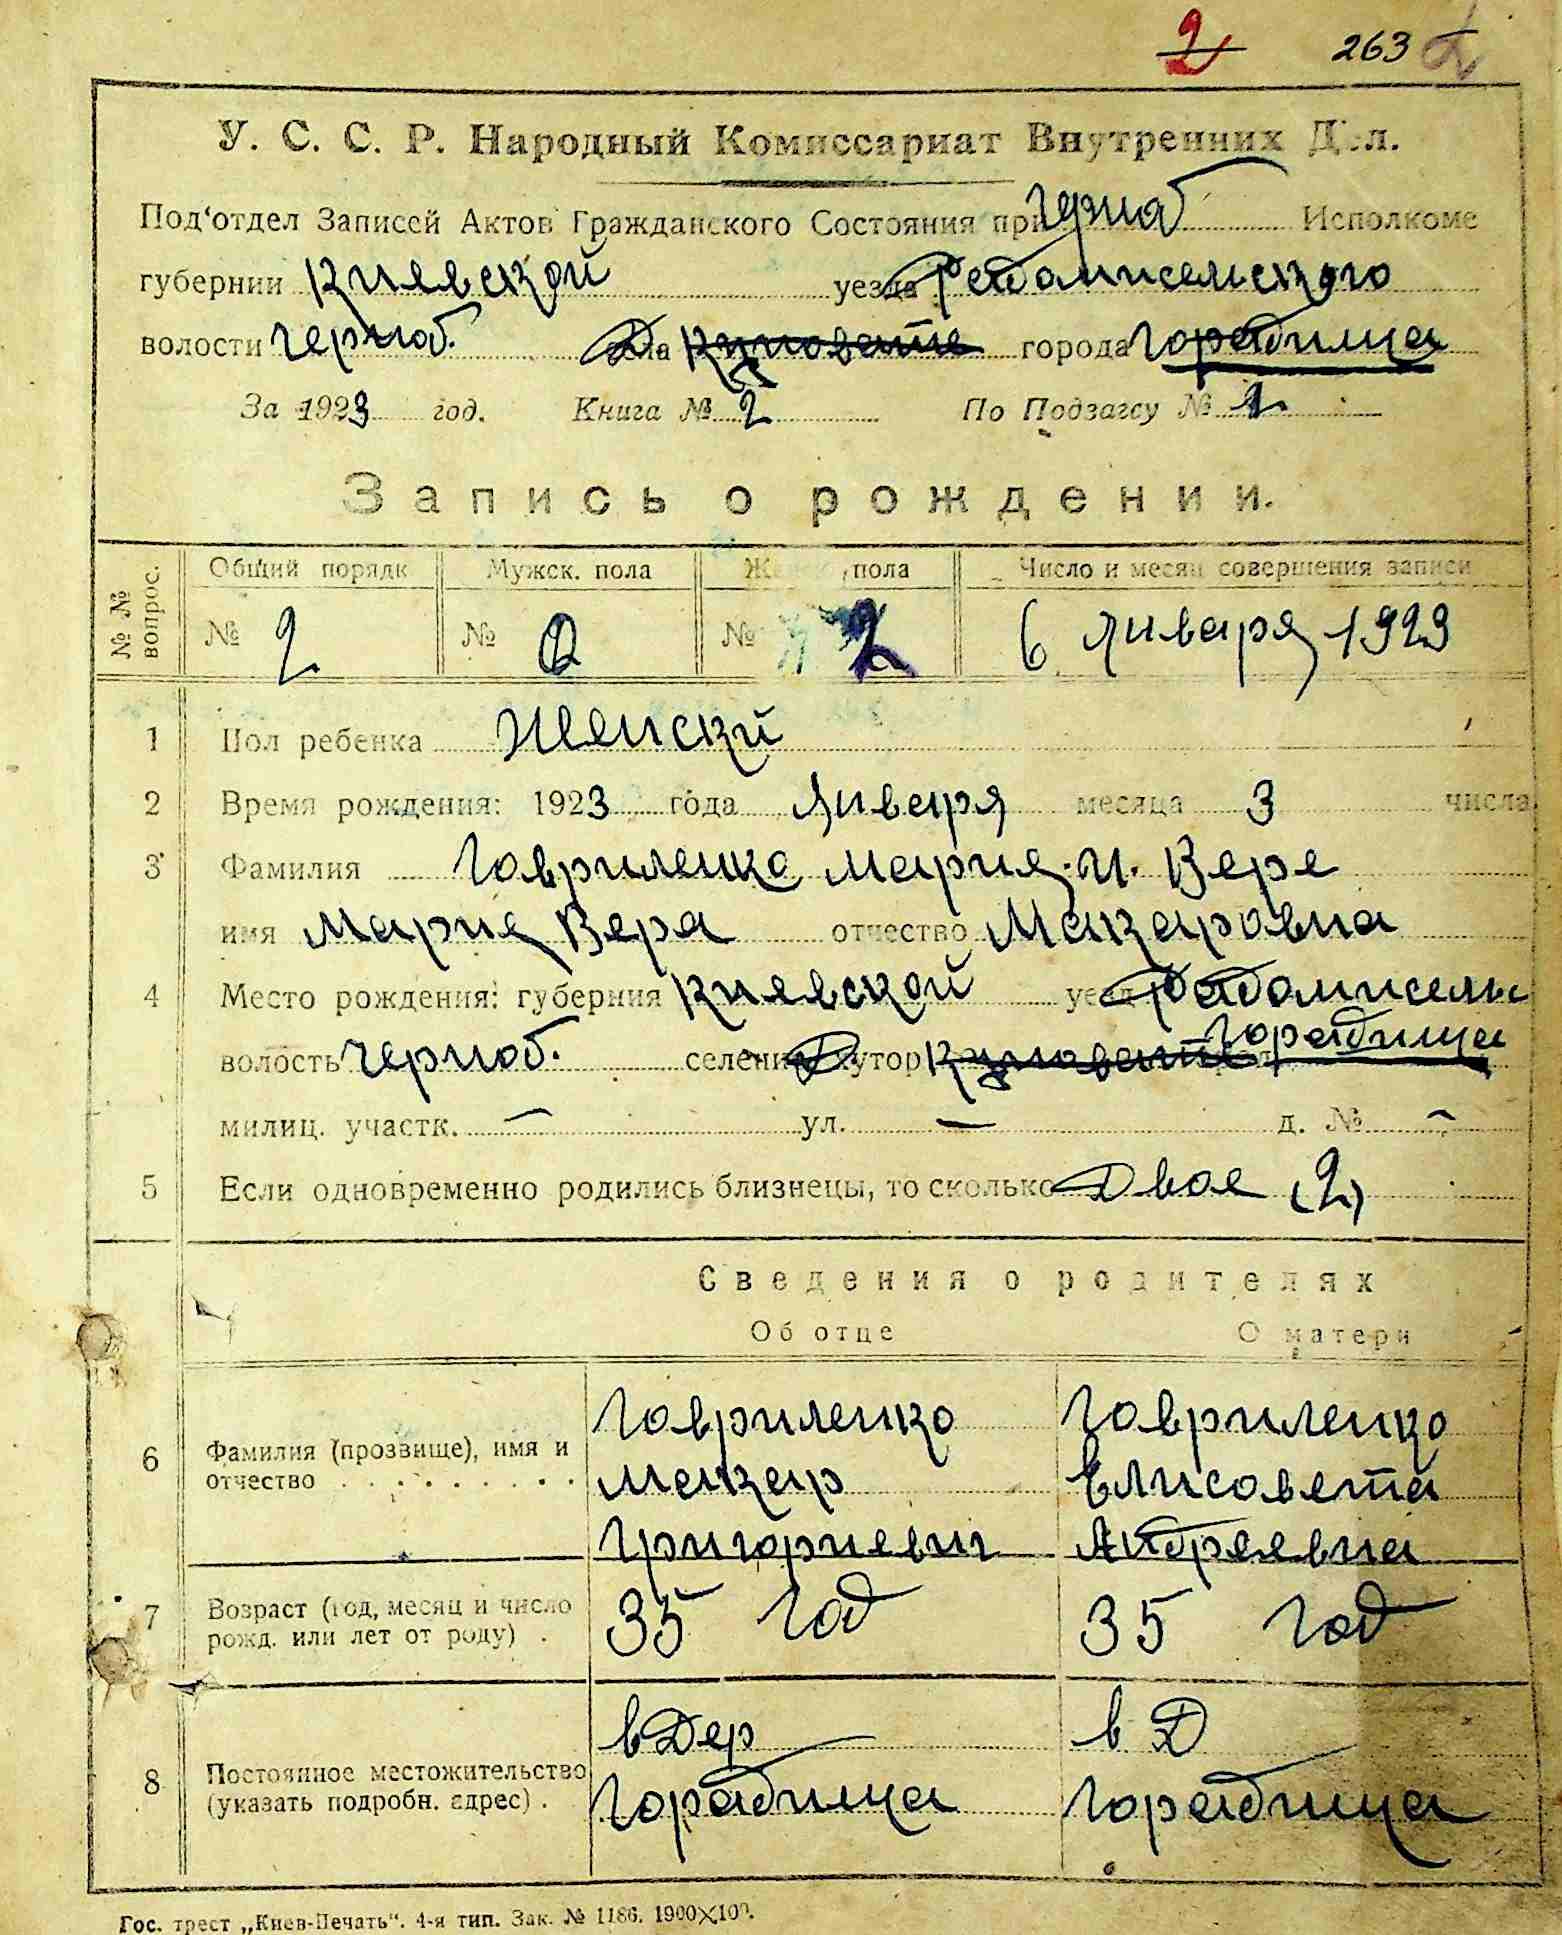 2 263
У. С. С. Р. Народный Комиссариат Внутренних Дел.
Под'отдел Записей Актов Гражданского Состояния при Черноб Исполкоме
губернии Киевской уезда Радомисельского
волости Черноб. Д города Горадища
За 1923 год. Книга № 2 По Подзагсу № 2
Запись о рождении.
№ № вопрос.
Общий порядк Мужск. пола Ж пола Число и месяц совершения записи
№ 2 № 0 № 2 6 января 1923
1 Пол ребенка Женский
2 Время рождения: 1923 года января месяца 3 числа
3 Фамилия Говриленко Мария. и. Вера
имя Мария Вера отчество Макаровна
4 Место рождения: губерния Киевской уезд Радомисельс
Горадища
волость Черноб. селение Д хутор
милиц. участк. — ул. — д. № -
5 Если одновременно родились близнецы, то сколько Двоя (2)
Сведения о родителях
Об отце О матери
6 Фамилия (прозвище), имя и отчество
Говриленко Говриленко
Макар Елисовета
Григориевич Андреевна
7 Возраст (год, месяц и число рожд. или лет от роду) .
35 год 35 год
8 Постоянное местожительство (указать подробн. адрес) .
в Дер в Д
Горадища Горадища
Гос. трест „Киев-Печать“. 4-я тип. Зак. № 1186. 1900×100.